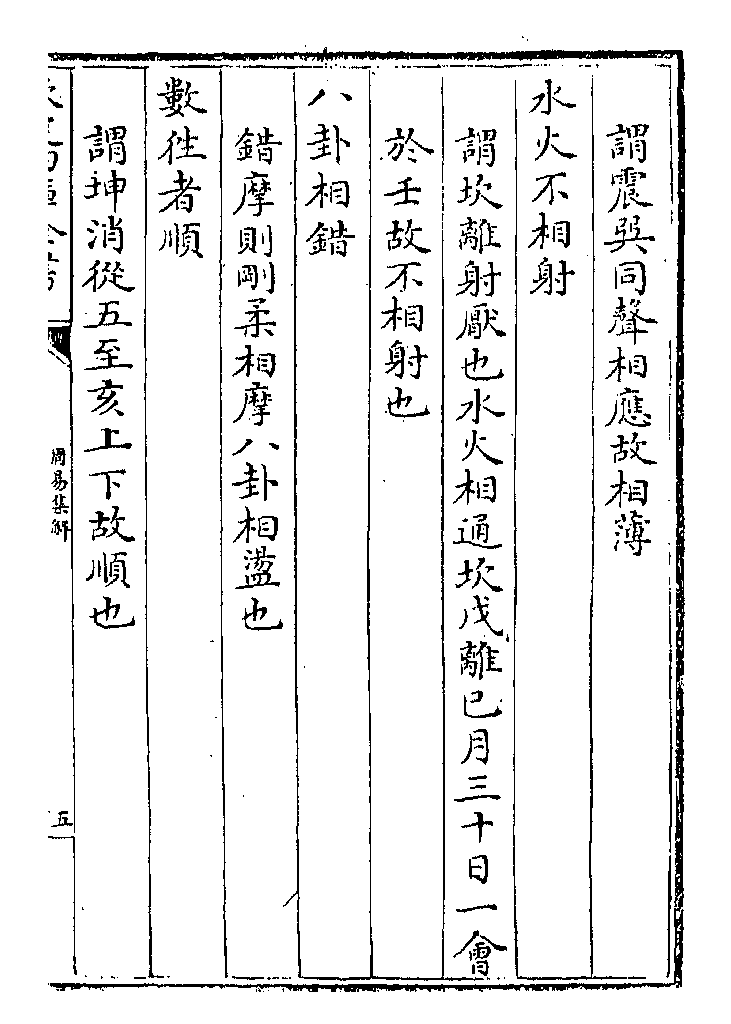 謂震巽同聲相應故相薄
水火不相射
謂坎離射厭也水火相通坎戊離已月三十日一會
於壬故不相射也
八卦相錯
錯摩則剛柔相摩八卦相盪也
數徃者順
謂坤消從五至亥上下故順也
周易集解
五